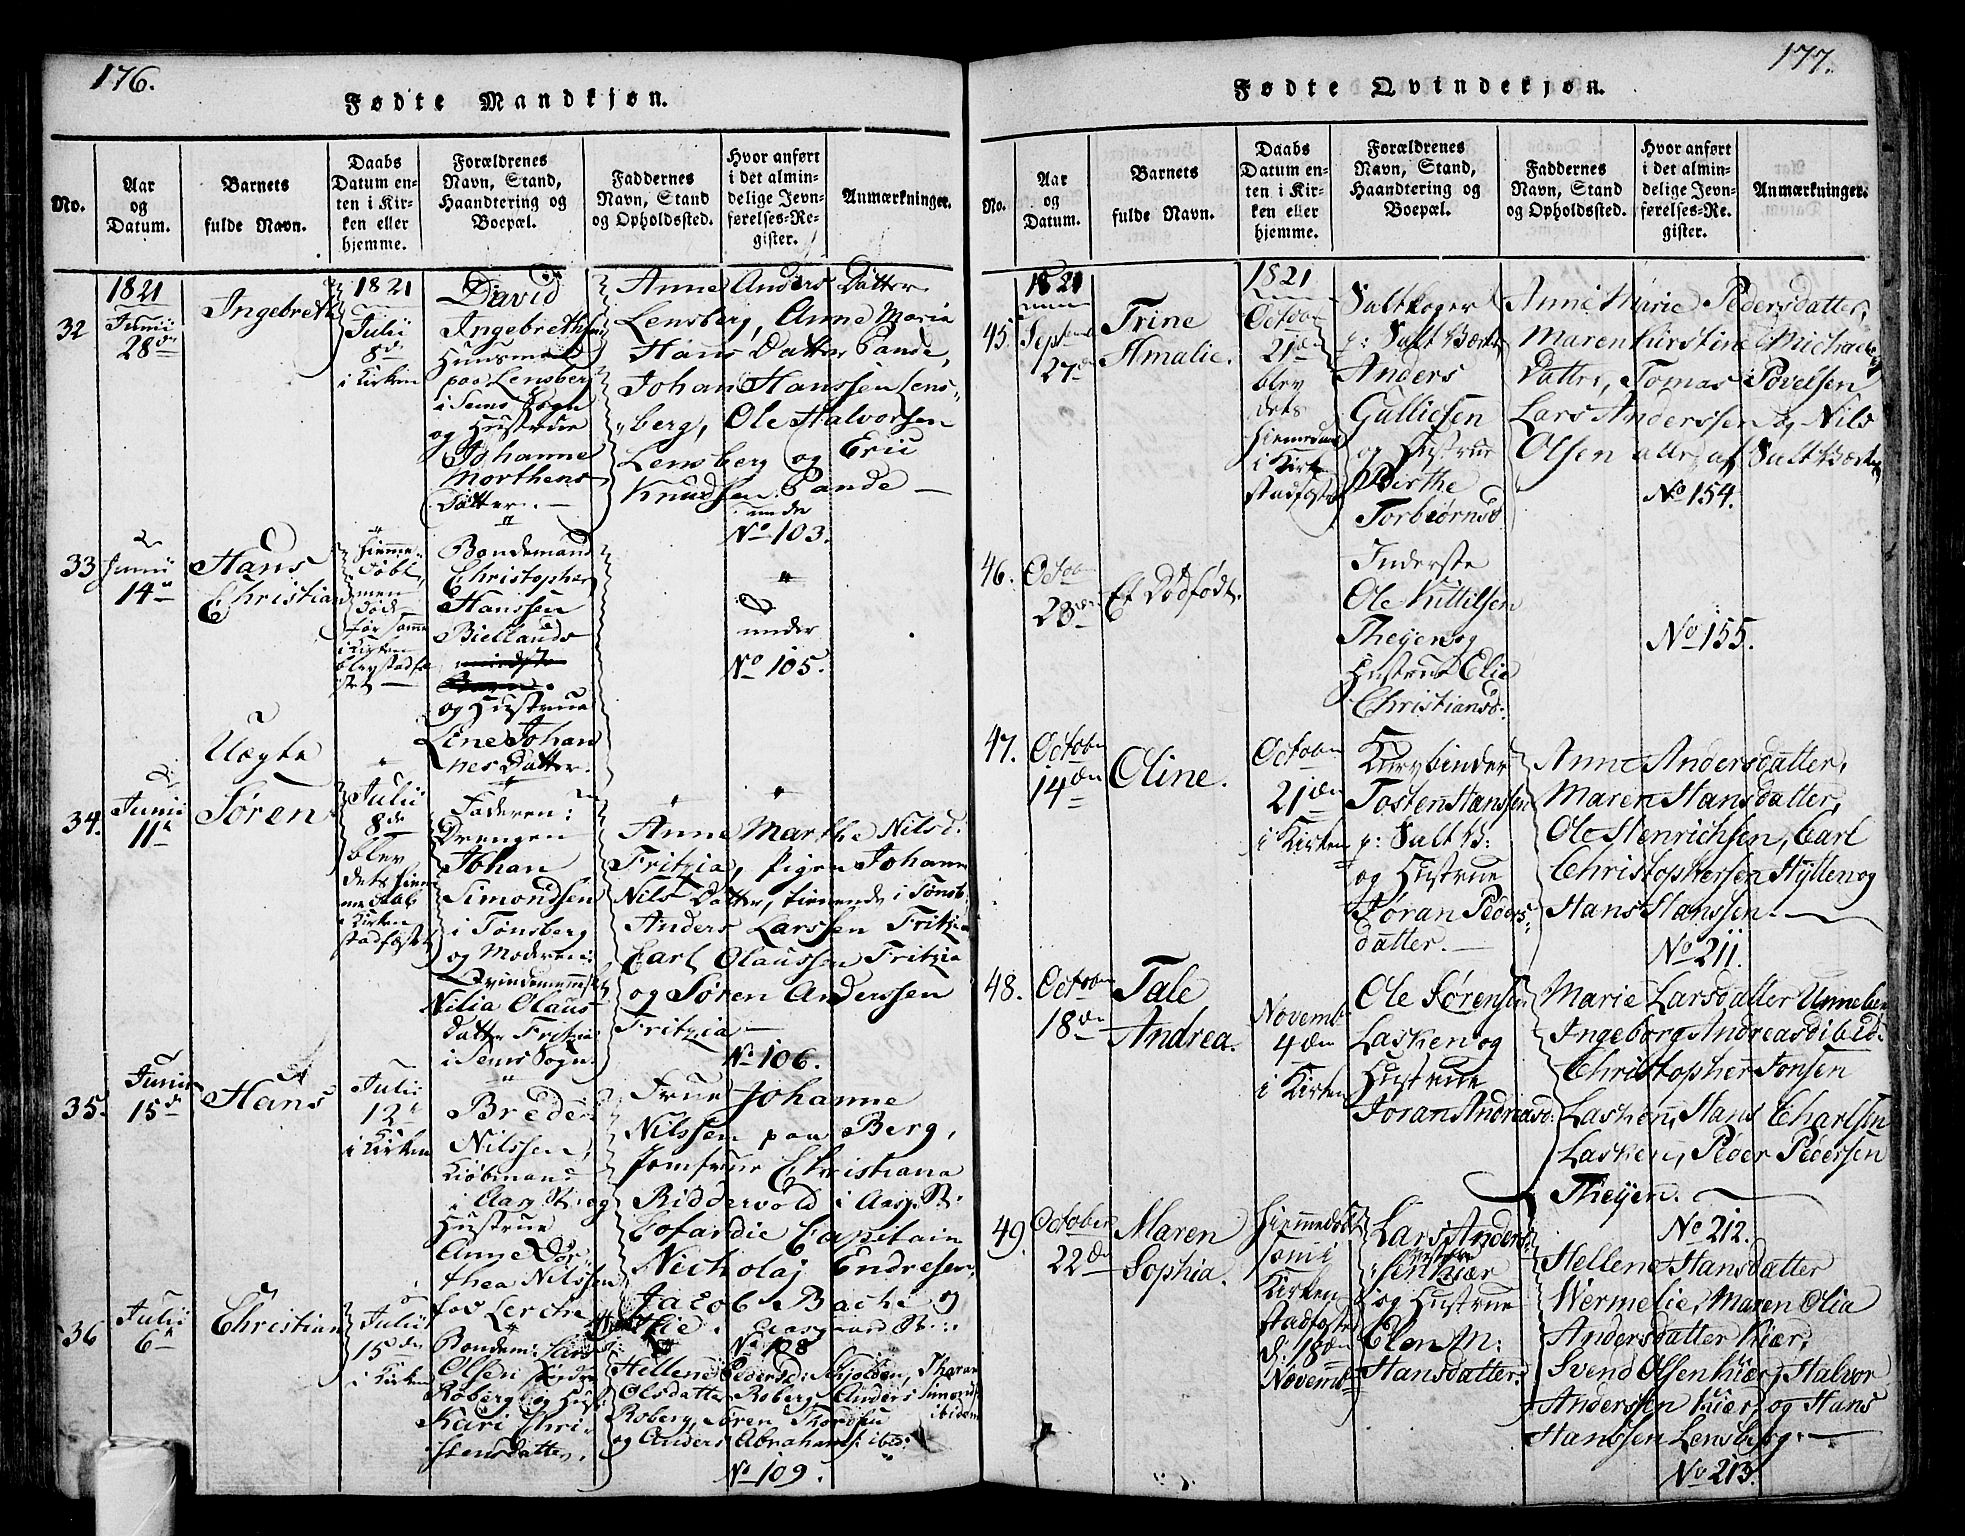 176.
Fødte Mandkjøn.
No.
Aar og Datum.
Barnets fulde Navn.
Daabs Datum enten i Kirken eller hjemme.
Forældrenes Navn, Stand, Haandtering og Boepæl.
Faddernes Navn, Stand og Opholdssted.
Hvor anført i det almindelige Jevnførelses-Register.
Anmærkninger.
32
1821
Junii
28de
Ingebreth
1821
Julii
8de
i Kirken
David
Ingebrethsen
Huusmand
paa Lensberg
i Sems Sogn
og Hustrue
Johanne
Morthens
Datter. —
Anne Anders Datter
Lensberg, Anne Maria
Hans Datter Pande,
Johan Hanssen Lens-
berg, Ole Halvorsen
Lensberg og Eric
Knudsen Pande —
under
No 103.
33
Junii
14de
Hans
Christian
hiemme-
døbt,
men
død
før Samme
i Kirken
blev stadfæ-
stet —
Bondemand
Christopher
Hanssen
Biellands
og Hustrue
Line Johan
nes Datter.
under
No 105.
34.
Junii
11te
Uægte
Søren
Julii
8de
blev
dets hiem-
me Daab
i Kirken
stadfæstet
Faderen:
Drengen
Johan
Simondsen
i Tønsberg
og Moderen:
Qvindemennesket
Nilia Olaus
datter Fritzia
i Sems Sogn.
Anne Marthe Nilsd:
Fritzia, Pigen Johanne
Nils Datter, tienende i Tønsb:
Anders Larssen Fritzia
Carl Olaussen Fritzia
og Søren Anderssen
Fritzia —
No 106.
35.
Junii
15de
Hans
Julii
12te
i Kirken
Brede
Nilssen,
Kiøbmand
i Aasg. St: og
Hustrue
Anne Dor-
thea Nilssen
fød Lerche
Frue Johanne
Nilssen paa Berg,
Jomfrue Christiana
Ridderwold i Aasg. St:
Cofardie Capitain
Nicholaj Endresen,
Jacob Bache og
Aasgaard St:
No 108
36
Julii
6te
Christian
Julii
15de
i Kirken
Bondem: Lars
Olsen Søndre
Roberg og Hust:
Kari Chri-
stensdatter.
Hellene Eldersd: Skjolden, Tharan
Olsdatter Roberg, Anders Simonds:
Roberg, Søren Thordsen ibidem
og Anders Abrahams: ibid:
No 109.
177.
Fødte Qvindekjøn.
No.
Aar og Datum.
Barnets fulde Navn.
Daabs Datum enten i Kirken eller hjemme.
Forældrenes Navn, Stand, Haandtering og Boepæl.
Faddernes Navn, Stand og Opholdssted.
Hvor anført i det almindelige Jevnførelses-Register.
Anmærkninger.
45.
1821
Septem
27de
Trine
Amalie.
1821
Octobr
21den
blev
dets
hiemedaab
i Kirken
stadfæstet
Saltkoger
p: Salt Værket
Anders
Gulliksen
og Hustrue
Birthe
Torbiørnsd
Anne Marie Pedersdatter,
Maren Kirstine Michaels
Datter, Tomas Povelsen
Lars Anderssen og Nils
Olsen alle af Salt Værket
No 154.
46.
Octobr
28de
Et Dødfødt.
Inderste
Ole Kittilsen
Theyen og
Hustrue Elie
Christiansd:
No 155.
47.
Octobr
14den
Oline.
Octobr
21den
i Kirken
Kurvbinder
Tosten Hanssen
p: Salt V:
og Hustrue
Jøran Peders-
datter. —
Anne Andersdatter,
Maren Hansdatter,
Ole Henrichsen, Carl
Christophersen Hytten og
Hans Hanssen. —
No 211.
48.
Octobr
18de
Tale
Andrea.
Novembr
4den
i Kirken
Ole Sørensen
Lasken og
Hustrue
Joran Andreasd:
Marie Larsdatter Unneber
Ingeborg Andreasd ibid:
Christopher Jonsen
Lasken, Hans Charlsen
Lasken, Peder Pedersen
Theyen. —
No 212.
49.
October
22de
Maren
Sophia.
Hiemmedøbt
Kirken
stadfæstet
d: 18den
Novemb
Lars Anders-
sen Kiær
og Hustrue
Elen M:
Hansdatter.
Hellene Hansdatter
Wermelie, Maren Olia
Andersdatter Kiær,
Svend Olsen Kiær, Halvor
Anderssen Kiær og Hans
Hanssen Lensberg. —
No 213.